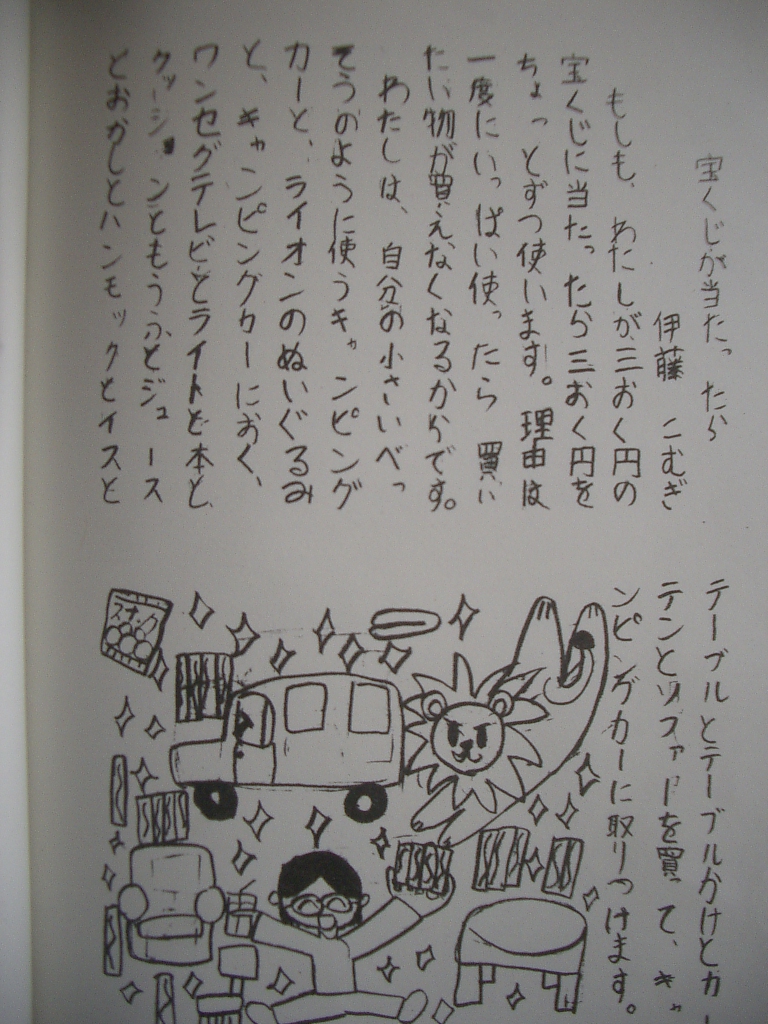 宝くじが当たったら
伊藤 こむぎ
もしも、わたしが三おく円の
宝くじに当たったら三おく円を
ちょっとずつ使います。理由は
一度にいっぱい使ったら 買い
たい物が買えなくなるからです。
わたしは、自分の小さいべっ
そうのように使うキャンピング
カーと、ライオンのぬいぐるみ
と、キャンピングカーにおく、
ワンセグテレビとライトと本と
クッションともうふとジュース
とおかしとハンモックとイスと
テーブルとテーブルかけとカー
テンとソファーを買って、キャ
ンピングカーに取りつけます。
スナック